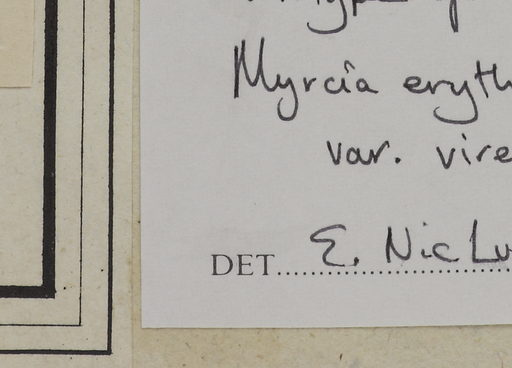 Myrcia eryth
var. vire
DET. E. Nic Lu